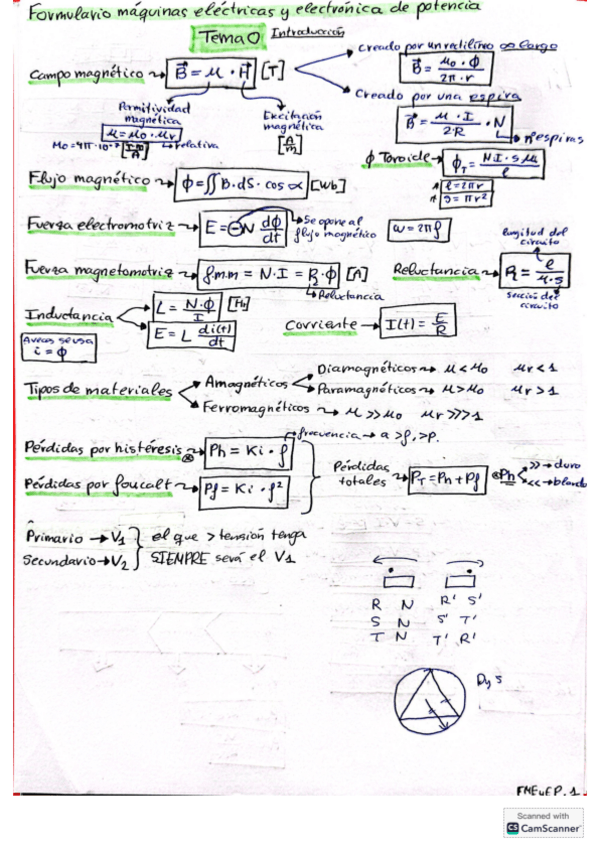 Formulario máquinas eléctricas y electrónica de potencia
Tema 0 Introducción
Creado por un rectilíneo ∞ largo
B = μ₀·φ / 2π·r
Campo magnético → B = μ · H [T]
Creado por una espira
B = μ·I / 2·R · N → nº espiras
Permitividad magnética
μ = μ₀·μr → relativa
Excitación magnética [A/m]
φ Toroide →
l = 2πr
S = πr²
Flujo magnético → φ = ∬ B·dS·cos α [Wb]
Fuerza electromotriz → E = -N dφ/dt → Se opone al flujo magnético
ω = 2πf
longitud del circuito
Fuerza magnetomotriz → f.m.m = N·I = R·φ [A]
Reluctancia
Reluctancia → R = l / μ·s
sección del circuito
Inductancia
L = N·φ / I [H]
E = L di(t)/dt
A veces se usa
i = φ
Corriente → I(t) = E/R
Tipos de materiales
Amagnéticos
Diamagnéticos → μ < μ₀ μr < 1
Paramagnéticos → μ > μ₀ μr > 1
Ferromagnéticos → μ >> μ₀ μr >>> 1
Pérdidas por histéresis → Ph = Ki · f
frecuencia → a >f, >p.
Pérdidas por foucalt → Pf = Ki · f²
Pérdidas totales → PT = Ph + Pf
Ph
>> → duro
<< → blando
Primario → V1
Secundario → V2
el que > tensión tenga
SIEMPRE será el V1
R N R' S'
S N S' T'
T N T' R'
Dy 5
FMEyEP. 1
Scanned with
CS CamScanner